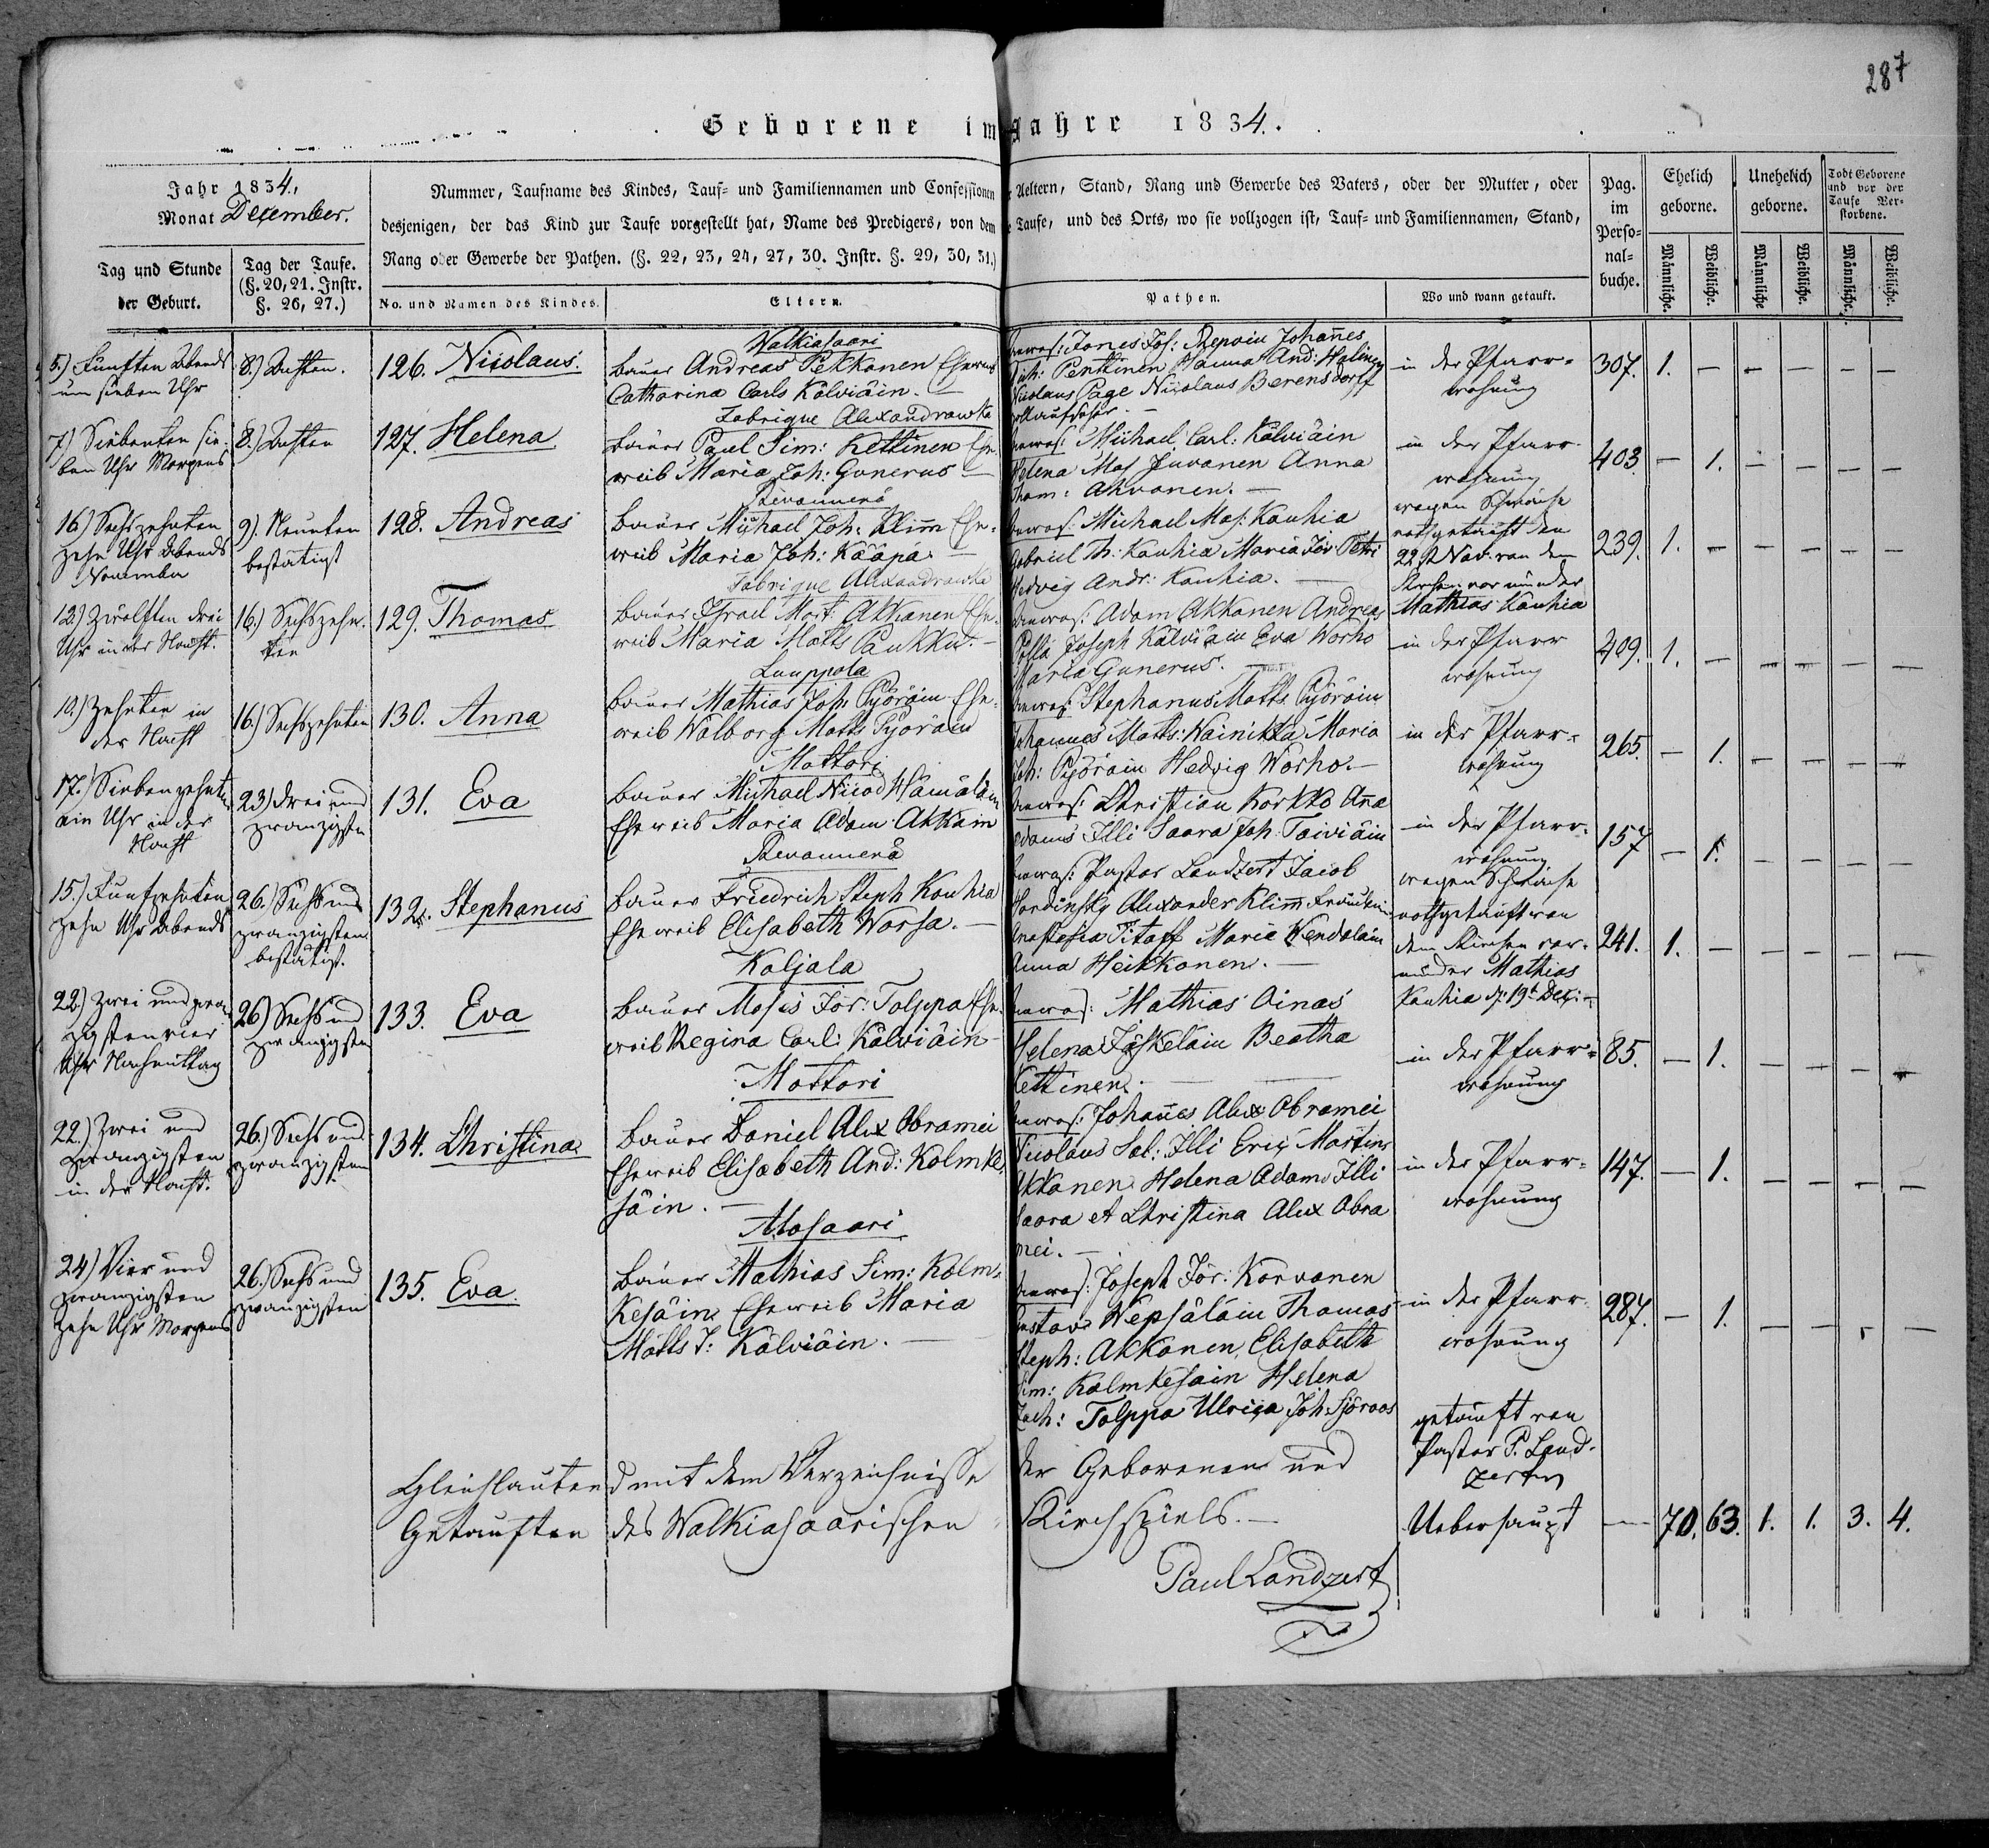 287
Geborene im Jahre 1834.
Jahr 1834,
Monat December.
Tag und Stunde
der Geburt.
Tag der Taufe.
(§. 20, 21. Instr.
§. 26, 27.)
Nummer, Taufname des Kindes, Tauf- und Familiennamen und Confessionen der Aeltern, Stand, Rang und Gewerbe des Vaters, oder der Mutter, oder
desjenigen, der das Kind zur Taufe vorgestellt hat, Name des Predigers, von dem die Taufe, und des Orts, wo sie vollzogen ist, Tauf- und Familiennamen, Stand,
Rang oder Gewerbe der Pathen. (§. 22, 23, 24, 27, 30. Instr. §. 29, 30, 31.)
No. und Namen des Kindes.
Eltern.
Pathen.
Wo und wann getauft.
Pag.
im
Perso-
nal-
buche.
Ehelich
geborne.
Unehelich
geborne.
Todt Geborene
und vor der
Taufe Ver-
storbene.
Männliche.
Weibliche.
Männliche
Weibliche.
Männliche.
Weibliche.
5.) Fünften Abends
um sieben Uhr
8.) Achten.
126. Nicolaus.
Walkiasaari
Bauer Andreas Pekkanen Eheweib
Catharina Carls Kälviäin. —
Johannes
Penttinen Hanna And: Halinen
Nicolaus Page Nicolaus Berensdorff
in der Pfarr-
wohnung
307. 1. — — — — —
7) Siebenten sie-
ben Uhr Morgens
8.) Achten
127. Helena
Fabrique Alexandrowka
Bauer Paul Sim: Kettinen Ehe-
weib Maria Joh: Gunerus —
Michael Carl: Kälviäin
Helena Mos Juvanen Anna
Thom: Ahvonen. —
in der Pfarr-
wohnung
403. — 1. — — — —
16) Sechszehnten
zehn Uhr Abends
November
9). Neunten
bestätigt
128. Andreas
Bauer Michael Joh: Klimm Ehe-
weib Maria Joh: Kääpä. —
Michael Mos: Kauhia
Gabriel Th: Kauhia Maria Jör Petri
Hedvig Andr: Kauhia. —
wegen Schwäche
nothgetauft den
22st Nov. von dem
Kirchenvormünder
Mathias Kauhia
239. 1. — — — — —
12) Zwölften drei
Uhr in der Nacht.
16.) Sechszehn-
ten
129. Thomas
Fabrique Alexandrowka
Bauer Israel Mart: Akkanen Ehe-
weib Maria Matts Paukku. —
Adam Akkanen Andreas
Pöllä Joseph Kälviäin Eva Worho
Maria Gunerus. —
in der Pfarr
wohnung
409. 1. — — — — —
10.) Zehnten in
der Nacht
16.) Sechszehnten
130. Anna
Lauppola
Bauer Mathias Joh: Pyöräin Ehe-
weib Walborg Matts Pyöräin
Stephanus Matts Pyöräin
Johannes Matts: Wainikka Maria
Joh: Pyöräin Hedvig Worho. —
in der Pfarr-
wohnung
265. — 1. — — — —
17.) Siebenzehnten
ein Uhr in der
Nacht
23) drei und
zwanzigsten
131. Eva
Mottori
Bauer Michael Nicod Hämäläin
Eheweib Maria Adam Akkain
Christian Korkko Anna
Adams Illi Saara Joh: Toiviäin
in der Pfarr-
wohnung
157 — 1. — — — —
15.) Funfzehnten
zehn Uhr Abends
26.) Sechs und
zwanzigsten
bestätigt.
132. Stephanus
Bauer Friedrich Steph Kauhia
Eheweib Elisabeth Warsa. —
Pastor Landzert Jacob
Alexander Klimm Fräulein
Anastasia Titoff Maria Kendoläin
Anna Heikkonen. —
wegen Schwäche
nothgetauft von
dem Kirchenvor-
münder Mathias
Kauhia d. 19t Dec: —
241. 1. — — — — —
22) Zwei und zwan
zigsten vier
Uhr Nachmittag
26) Sechs und
zwanzigsten
133. Eva
Kaljala
Bauer Moses Jör: Tolppa Ehe-
weib Regina Carl: Kälviäin —
Mathias Oinas
Helena Jäskeläin Beatha
Kettinen. —
in der Pfarr-
wohnung
85. — 1. — — — —
22.) Zwei und
zwanzigsten
in der Nacht.
26.) Sechs und
zwanzigsten
134. Christina
Mottori
Bauer Daniel Alex Abramei
Eheweib Elisabeth And: Kolmke-
säin. —
Johannes Alex Abramei
Nicolaus Sal: Illi Eric Martins
Akkanen Helena Adams Illi
Saara et Christina Alex Abra
mei. —
in der Pfarr-
wohnung
147. — 1. — — — —
24) Vier und
zwanzigsten
Zehn Uhr Morgens
26.) Sechs und
zwanzigsten
135. Eva
Alosaari
Bauer Mathias Sim: Kolm-
kesäin Eheweib Maria
Matts J: Kälviäin. —
Joseph Jör: Korvanen
Gustav Wepsäläin Thomas
Steph: Akkanen, Elisabeth
Sim: Kolmkesäin Helena
Zach: Tolppa Ulrica Joh: Sjöroos
in der Pfarr-
wohnung
287. — 1. — — — —
getauft von
Pastor P. Land-
zert
Gleichlautend mit dem Verzeichnisse der Geborenen und
Getauften des Walkiasaarischen Kirchspiels. —
Ueberhaupt — 70. 63. 1. 1. 3. 4.
Paul Landzert